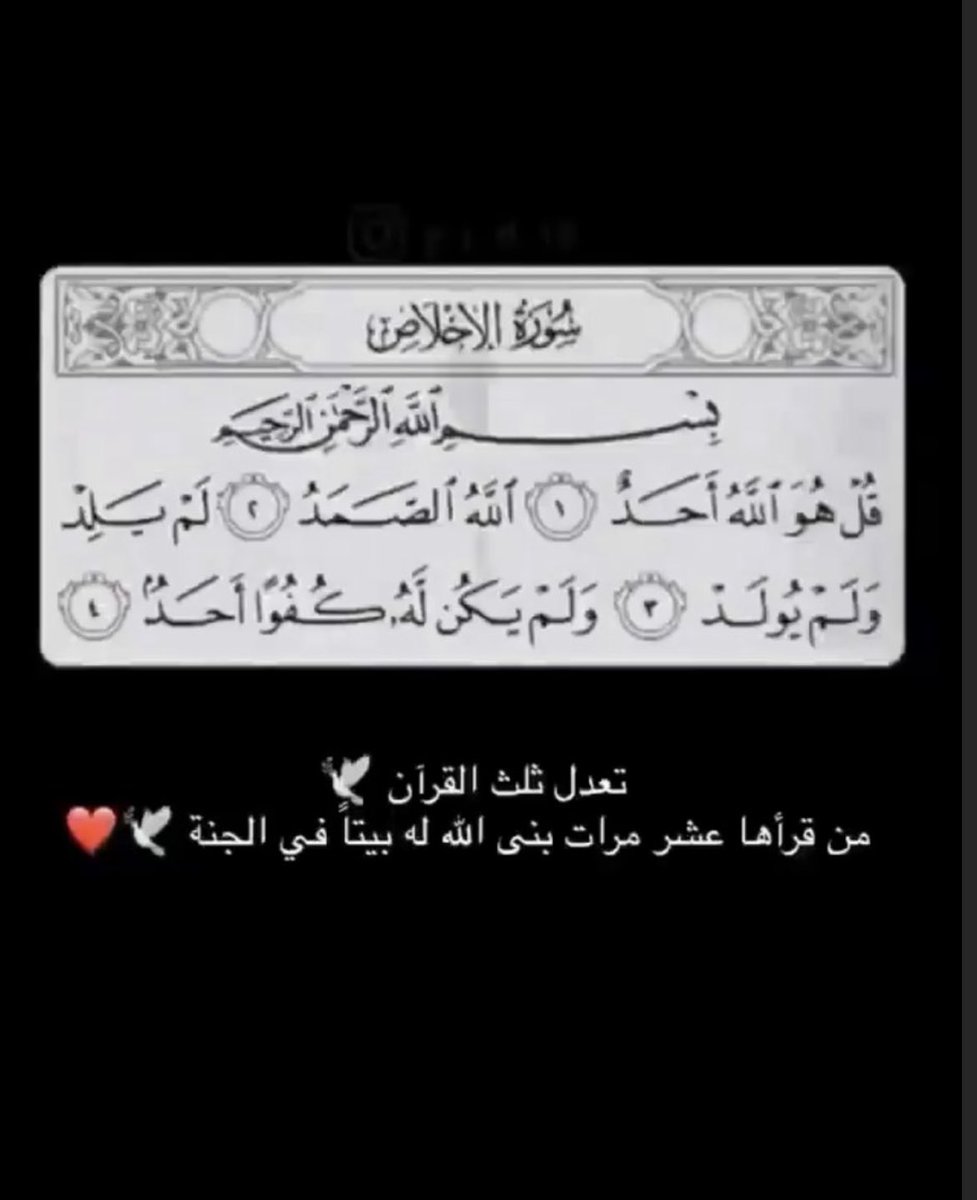 سُورَةُ الإِخْلَاصِ
بِسْمِ ٱللَّهِ ٱلرَّحْمَٰنِ ٱلرَّحِيمِ
قُلْ هُوَ ٱللَّهُ أَحَدٌ ١ ٱللَّهُ ٱلصَّمَدُ ٢ لَمْ يَلِدْ
وَلَمْ يُولَدْ ٣ وَلَمْ يَكُن لَّهُۥ كُفُوًا أَحَدٌۢ ٤
تعدل ثلث القرآن 🕊
من قرأها عشر مرات بنى الله له بيتاً في الجنة 🕊❤️